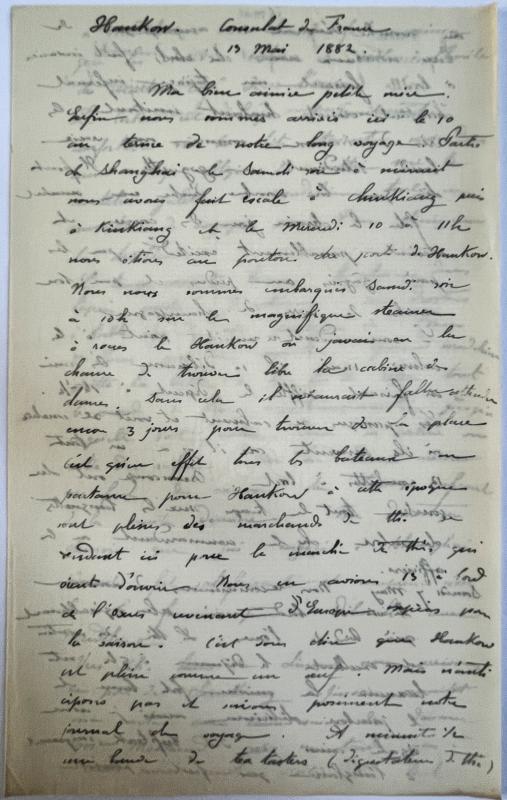 Hankow. Consulat de France
13 Mai 1882.
Ma bien aimée petite mère.
Enfin nous sommes arrivés ici le 10
au terme de notre long voyage Partis
de Shanghai le Samedi soir à minuit
nous avons fait escale à Chinkiang puis
à Kiukiang et le Mercredi 10 à 11h
nous étions au ponton du port de Hankow.
Nous nous sommes embarqués Samedi soir
à 10h sur le magnifique steamer
à roues le Hankow où j'avais eu la
chance de trouver libre la cabine des
dames sans cela il m'aurait fallu attendre
encore 3 jours pour trouver de la place
c'est qu'en effet tous les bateaux en
partance pour Hankow à cette époque
sont pleins des marchands de thé se
rendant ici pour le marché de thés qui
vient d'ouvrir. Nous en avions 15 à bord
de l' venant d'Europe exprès pour
la saison. C'est vous dire que Hankow
est plein comme un œuf. Mais n'anti
cipons pas et suivons posément notre
journal de voyage. A minuit ½
une bande de tea tasters (dégustateurs de thé)